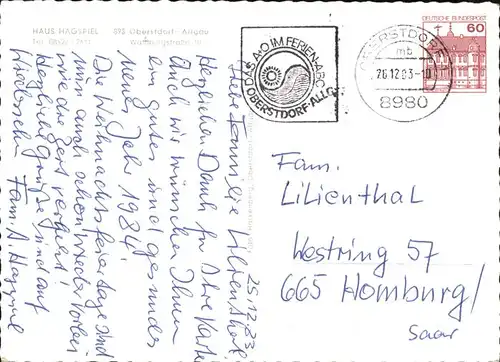 HAUS HAGSPIEL 898 Oberstdorf - Allgäu
Tel. 08322 /
25.12.83
Liebe Familie Lilienthal
Herzlichen Dank für Ihre Karte
Auch wir wünschen Ihnen
ein gutes und gesundes
neues Jahr 1984!
Die Weihnachtsfeiertage sind
nun auch schon wieder vorbei
wie die Zeit vergeht!
Herzliche Grüße und auf
Wiedersehen Fam. A Hagspiel
DAS A+O IM FERIEN-ABC
OBERSTDORF-ALLG.
OBERSTDORF
mb
26.12.83-10
8980
DEUTSCHE BUNDESPOST
60
Fam.
Lilienthal
Westring 57
665 Homburg/
Saar